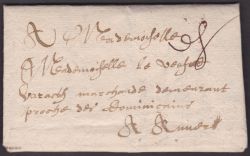 A Mademoiselle
A Mademoiselle le
marchande demeurant
proche des Dominicains
A Anvers